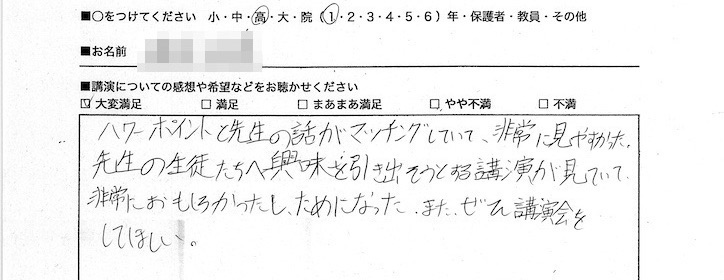 ■○をつけてください 小・中・高・大・院（1・2・3・4・5・6）年・保護者・教員・その他
■お名前
■講演についての感想や希望などをお聴かせください
☑ 大変満足 □ 満足 □ まあまあ満足 □ やや不満 □ 不満
パワーポイントと先生の話がマッチングしていて、非常に見やすかった。
先生の生徒たちへ興味を引き出そうとする講演が見ていて、
非常におもしろかったし、ためになった。また、ぜひ講演会を
してほしい。